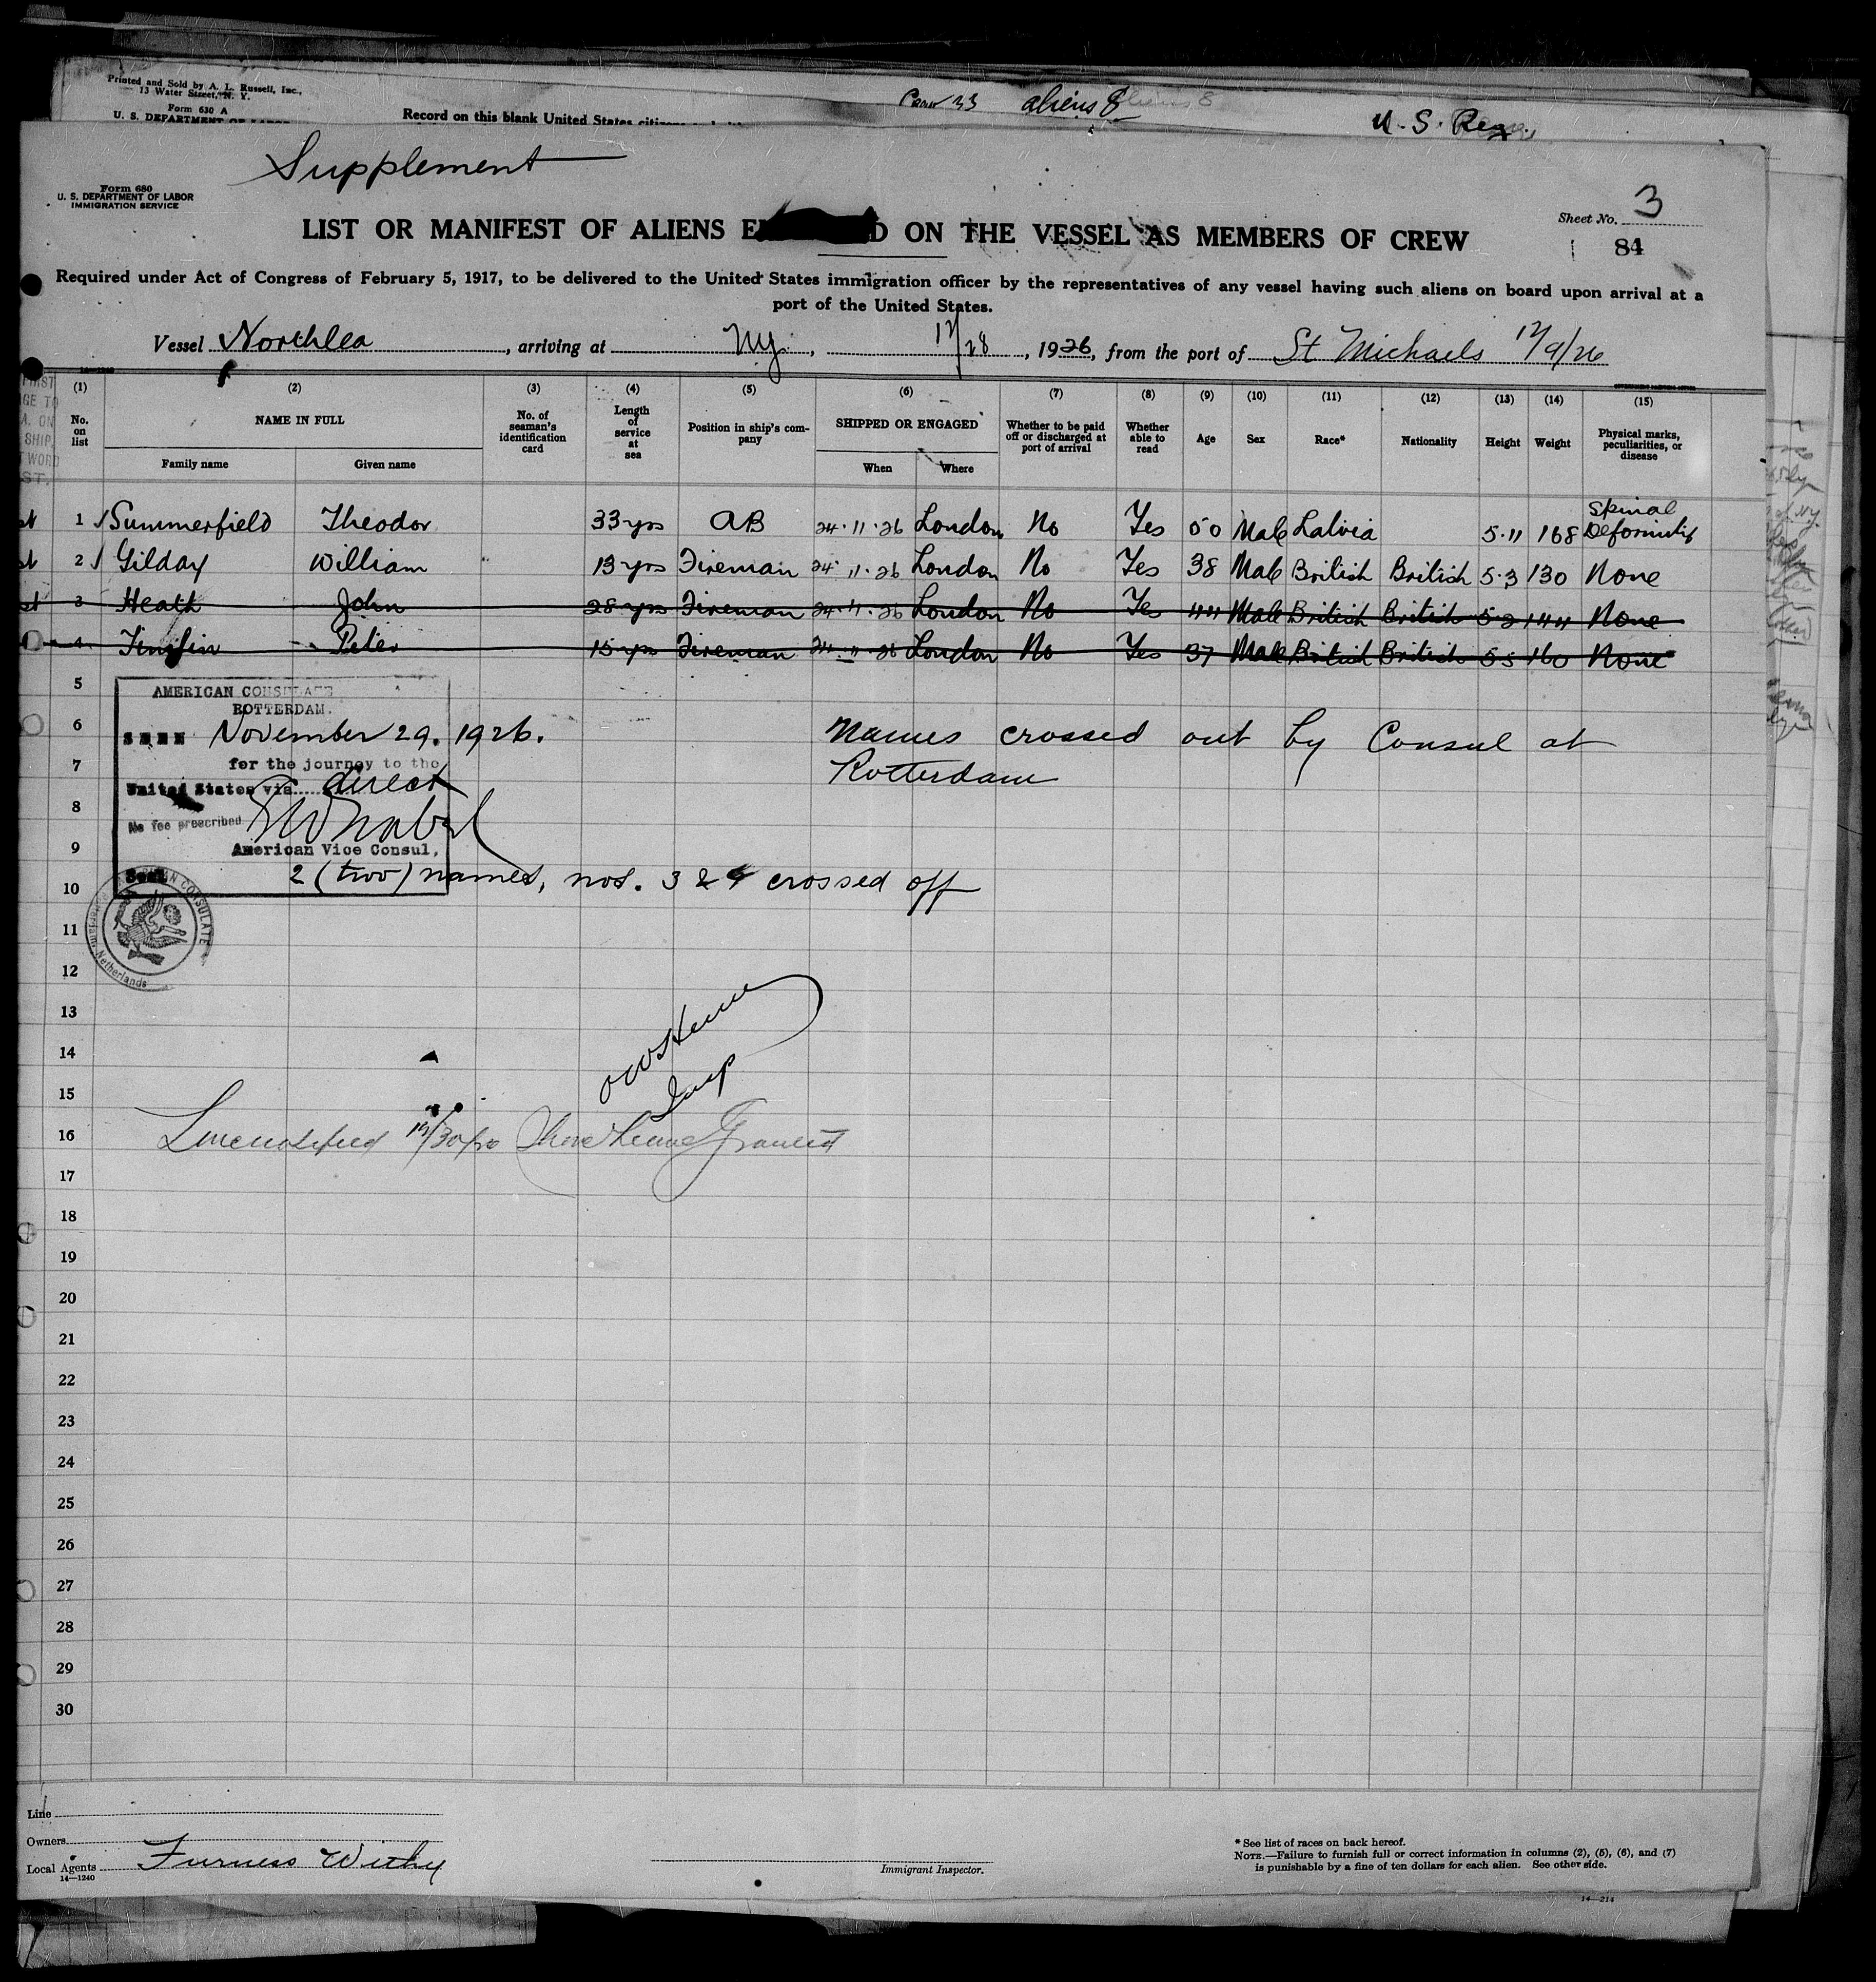 Printed and Sold by A. L. Russell, Inc.,
13 Water Street, N. Y.
Form 630 A
U. S. DEPARTMENT OF LABOR
Record on this blank United States citizens
Crew 33 aliens 8
U. S. Reg.
Supplement
Form 680
U. S. DEPARTMENT OF LABOR
IMMIGRATION SERVICE
Sheet No. 3
84
LIST OR MANIFEST OF ALIENS E D ON THE VESSEL AS MEMBERS OF CREW
Required under Act of Congress of February 5, 1917, to be delivered to the United States immigration officer by the representatives of any vessel having such aliens on board upon arrival at a
port of the United States.
Vessel Northlea, arriving at Ny., 12/28, 1926, from the port of St Michaels 12/9/26
(1) (2) (3) (4) (5) (6) (7) (8) (9) (10) (11) (12) (13) (14) (15)
No. on list NAME IN FULL Family name Given name No. of seaman's identification card Length of service at sea Position in ship's company SHIPPED OR ENGAGED When Where Whether to be paid off or discharged at port of arrival Whether able to read Age Sex Race* Nationality Height Weight Physical marks, peculiarities, or disease
st 1 Summerfield Theodor 33 yrs AB 24.11.26 London No Yes 50 Male Latvia 5.11 168 Spinal Deformity
st 2 Gilday William 13 yrs Fireman 24.11.26 London No Yes 38 Male British British 5.3 130 None
st 3 Heath John 28 yrs Fireman 24.11.26 London No Yes 44 Male British British 5.3 144 None
4 Peter 15 yrs Fireman 24.11.26 London No Yes 37 Male British British 5.5 160 None
5
AMERICAN CONSULATE
ROTTERDAM.
6
SEEN November 29. 1926.
Names crossed out by Consul at
Rotterdam
7
for the journey to the
United States via direct
8
No fee prescribed
9
American Vice Consul,
Seal
10
2 (two) names, nos. 3 & 4 crossed off
AMERICAN CONSULATE
Rotterdam, Netherlands
11
12
13
14
Insp
15
16
Line notified 12/30/26 Shore leave Granted
17
18
19
20
21
22
23
24
25
26
27
28
29
30
Line
Owners
Local Agents Furness Withy
14—1240
Immigrant Inspector.
* See list of races on back hereof.
NOTE.—Failure to furnish full or correct information in columns (2), (5), (6), and (7)
is punishable by a fine of ten dollars for each alien. See other side.
14—214